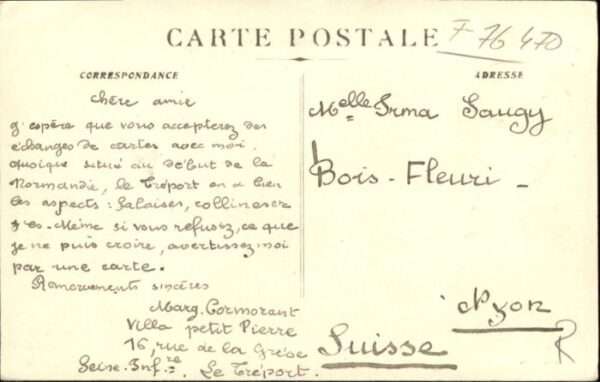 CARTE POSTALE
F 76 470
CORRESPONDANCE
ADRESSE
chère amie
J'espère que vous accepterez des
échanges de cartes avec moi.
Quoique situé au début de la
Normandie, le Tréport en a bien
les aspects : falaises, collines er
Même si vous refusez, ce que
je ne puis croire, avertissez moi
par une carte.
sincères
Marg. Cormorant
Villa petit Pierre
16, rue de la
Seine-Infre. Le Tréport.
Melle Irma Saugy
Bois-Fleuri -
Nyon
Suisse